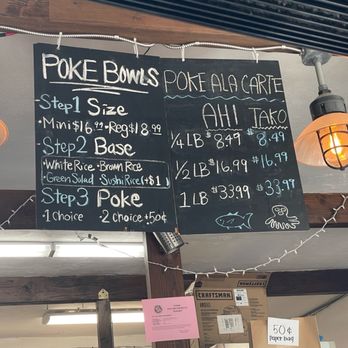 POKE BOWLS
-Step1 Size
•Mini $16.99 •Reg $18.99
-Step2 Base
•White Rice •Brown Rice
•Green Salad •Sushi Rice (+$1)
-Step3 Poke
-1 choice -2 choice +50¢
POKE ALA CARTE
AHI TAKO
1/4 LB $8.49 $8.49
1/2 LB $16.99 $16.99
1 LB $33.99 $33.99
CRAFTSMAN
50¢
paper bag